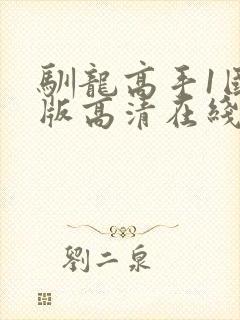 馴龍高手1国
版高清在綫
劉二泉